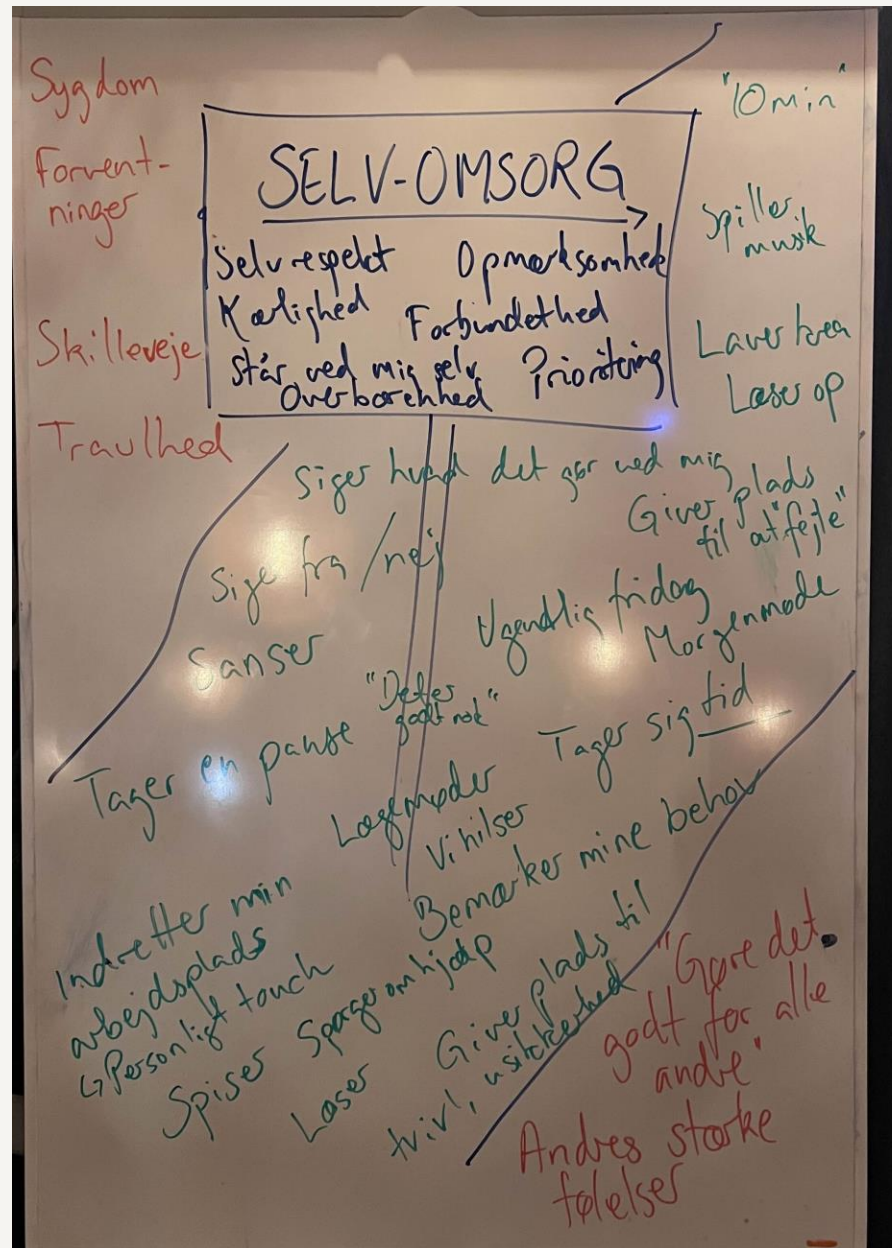 Sygdom
Forvent-
ninger
Skilleveje
Travlhed
SELV-OMSORG
Selvrespekt Opmærksomhed
Kærlighed Forbundethed
Står ved mig selv Prioritering
Overbærenhed
"10 min"
Spiller
musik
Laver krea
Læser op
Siger hvad det gør ved mig
Giver plads
til at "fejle"
Sige fra / nej
Ugentlig fridag
Morgenmøde
Sanser
"Det er
godt nok"
Tager en pause
Tager sig tid
Lægemøder
Vi hilser
Bemærker mine behov
Indretter min
arbejdsplads
↳ Personligt touch
Spørger om hjælp
Spiser
Læser
Giver plads til
tvivl, usikkerhed
"Gøre det
godt for alle
andre"
Andres stærke
følelser